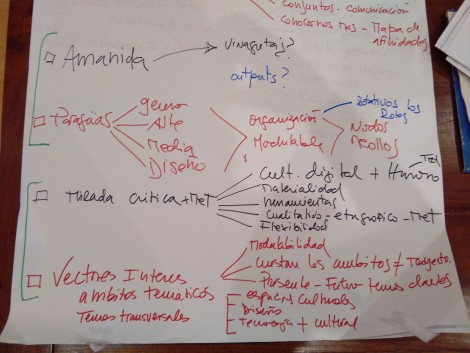 conjuntos - comunicación
conocernos mas - Mapa de
afinidades
Amanida → vinagretas?
outputs?
Paraguas
genero
Arte
Media
Diseño
organización
Modulable
rotativos los
Roles
Nodos
Mirada crítica + Met
Cult. digital + Humano
Materialidad
herramientas
Cualitativo - etnografico - Met
Flexibilidad
Vectores Interes
ambitos tematicos
Temas transversales
Modulabilidad
los ambitos ≠
Presente - Futuro temas claves
espacios culturales
Diseño
Tecnología + cultural